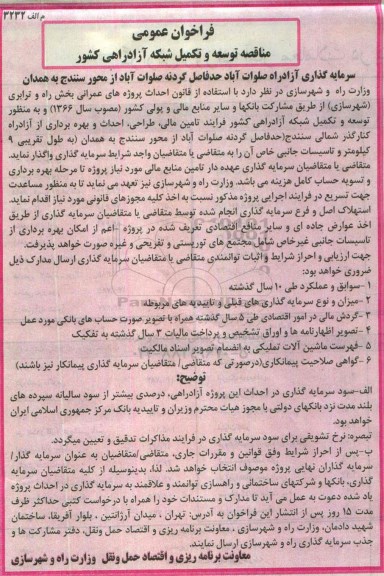 م الف ۳۲۳۲
فراخوان عمومی
مناقصه توسعه و تکمیل شبکه آزادراهی کشور
سرمایه گذاری آزادراه صلوات آباد حدفاصل گردنه صلوات آباد از محور سنندج به همدان
وزارت راه و شهرسازی در نظر دارد با استفاده از قانون احداث پروژه های عمرانی بخش راه و ترابری
(شهرسازی) از طریق مشارکت بانکها و سایر منابع مالی و پولی کشور (مصوب سال ۱۳۶۶) و به منظور
توسعه و تکمیل شبکه آزادراهی کشور فرایند تامین مالی، طراحی، احداث و بهره برداری از آزادراه
کنارگذر شمالی سنندج(حدفاصل گردنه صلوات آباد از محور سنندج به همدان (به طول تقریبی ۹
کیلومتر و تاسیسات جانبی خاص آن را به متقاضی یا متقاضیان واجد شرایط سرمایه گذاری واگذار نماید.
متقاضی یا متقاضیان سرمایه گذاری عهده دار تامین منابع مالی مورد نیاز پروژه تا مرحله بهره برداری
و تسویه حساب کامل هزینه می باشد. وزارت راه و شهرسازی نیز تعهد می نماید تا به منظور مساعدت
جهت تسریع در فرایند اجرایی پروژه مذکور نسبت به اخذ کلیه مجوزهای قانونی مورد نیاز اقدام نماید.
استهلاک اصل و فرع سرمایه گذاری انجام شده توسط متقاضی یا متقاضیان سرمایه گذاری از طریق
اخذ عوارض جاده ای و سایر منافع اقتصادی تعریف شده در پروژه اعم از امکان بهره برداری از
تاسیسات جانبی غیرخاص شامل مجتمع های توریستی و تفریحی و غیره صورت خواهد پذیرفت.
جهت ارزیابی و احراز شرایط و اثبات توانمندی متقاضی یا متقاضیان سرمایه گذاری ارسال مدارک ذیل
ضروری خواهد بود:
۱-سوابق و عملکرد طی ۱۰ سال گذشته
۲-میزان و نوع سرمایه گذاری های قبلی و تاییدیه های مربوطه
۳-گردش مالی در امور اقتصادی طی ۵ سال گذشته همراه با تصویر صورت حساب های بانکی مورد عمل
۴-تصویر اظهارنامه ها و اوراق تشخیص و پرداخت مالیات ۳ سال گذشته به تفکیک
۵-فهرست ماشین آلات تملیکی به انضمام تصویر اسناد مالکیت
۶-گواهی صلاحیت پیمانکاری(درصورتی که متقاضی/ متقاضیان سرمایه گذاری پیمانکار نیز باشند)
توضیح:
الف-سود سرمایه گذاری در احداث این پروژه آزادراهی، درصدی بیشتر از سود سالیانه سپرده های
بلند مدت نزد بانکهای دولتی با مجوز هیات محترم وزیران و تاییدیه بانک مرکز جمهوری اسلامی ایران
خواهد بود.
تبصره: نرخ تشویقی برای سود سرمایه گذاری در فرایند مذاکرات تدقیق و تعیین میگردد.
ب-پس از احراز شرایط وفق قوانین و مقررات جاری، متقاضی/متقاضیان به عنوان سرمایه گذار/
سرمایه گذاران نهایی پروژه موصوف انتخاب خواهد شد. لذا، بدینوسیله از کلیه متقاضیان سرمایه
گذاری، بانکها و شرکتهای ساختمانی و راهسازی توانمند و علاقمند به سرمایه گذاری در احداث پروژه
یاد شده دعوت به عمل می آید تا مدارک و مستندات خود را همراه با درخواست کتبی حداکثر ظرف
مدت ۱۵ روز پس از انتشار این فراخوان به آدرس: تهران ، میدان آرژانتین ، بلوار آفریقا، ساختمان
شهید دادمان، وزارت راه و شهرسازی ، معاونت برنامه ریزی و اقتصاد حمل ونقل، دفتر مشارکت ها و
جذب سرمایه گذاری راه و شهرسازی ارسال نمایند.
معاونت برنامه ریزی و اقتصاد حمل ونقل وزارت راه و شهرسازی